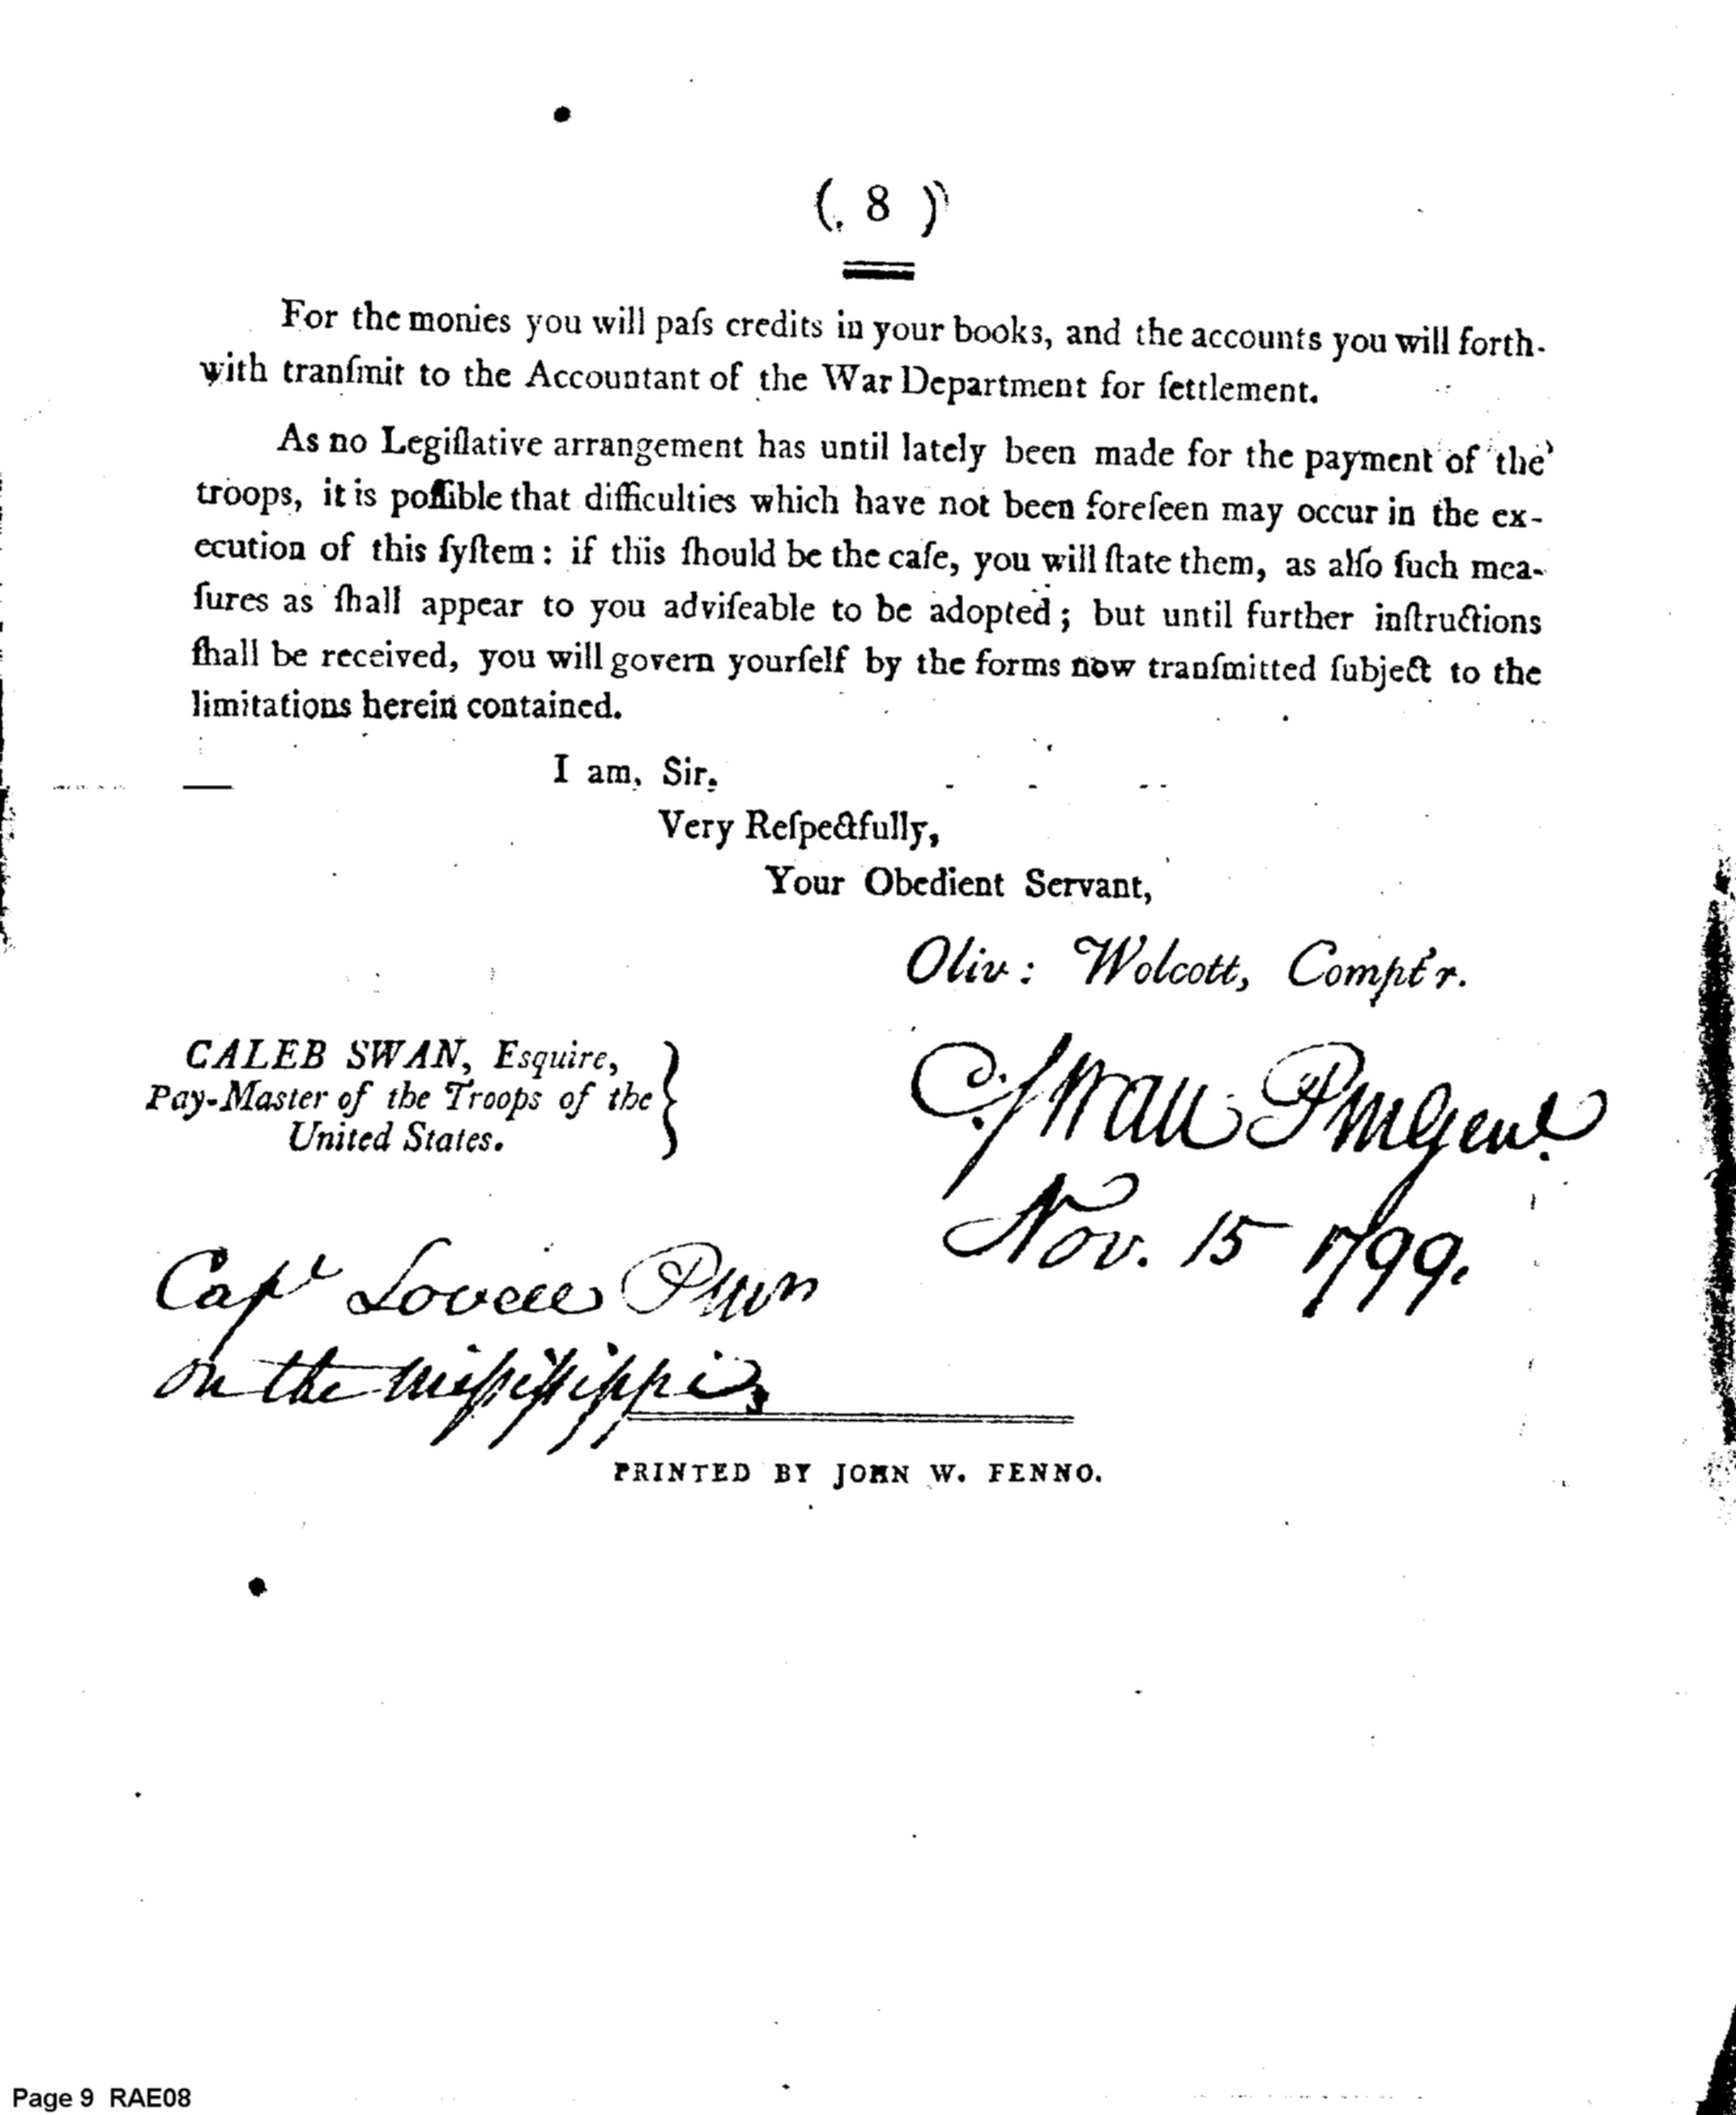 ( 8 )
For the monies you will paſs credits in your books, and the accounts you will forth-
with tranſmit to the Accountant of the War Department for ſettlement.
As no Legiſlative arrangement has until lately been made for the payment of the
troops, it is poſſible that difficulties which have not been foreſeen may occur in the ex-
ecution of this ſyſtem: if this ſhould be the caſe, you will ſtate them, as alſo ſuch mea-
ſures as ſhall appear to you adviſeable to be adopted; but until further inſtructions
ſhall be received, you will govern yourſelf by the forms now tranſmitted ſubject to the
limitations herein contained.
I am, Sir,
Very Reſpectfully,
Your Obedient Servant,
Oliv: Wolcott, Compt'r.
CALEB SWAN, Esquire,
Pay-Master of the Troops of the
United States.
C. Swan PMGenl.
Nov. 15 1799.
Capt Lovell
on the Miſſiſſippi
PRINTED BY JOHN W. FENNO.
Page 9 RAE08